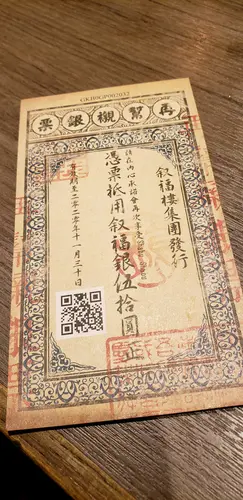 再幫襯銀票
叙福樓集團發行
在內心承諾會再次享受
憑票抵用叙福銀伍拾圓正
有效期至二零二零年十一月三十日